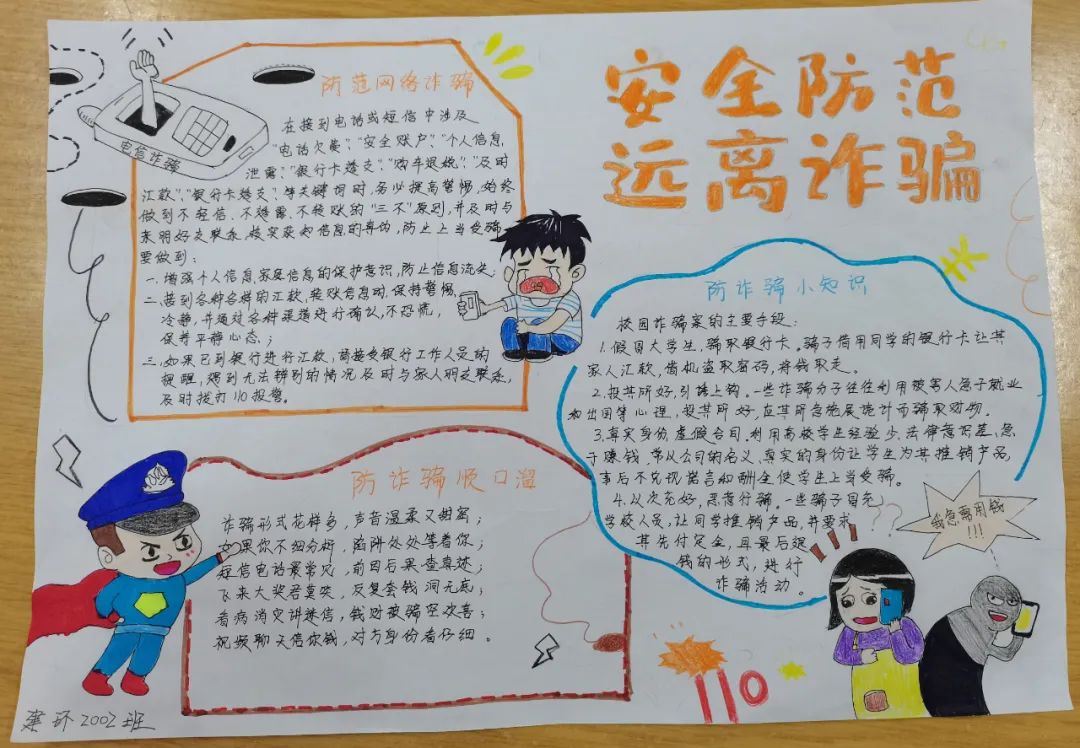 安全防范
远离诈骗
电信诈骗
防范网络诈骗
在接到电话或短信中涉及
"电话欠费"、"安全账户"、"个人信息
泄露"、"银行卡透支"、"购车退税"、"及时
汇款"、"银行卡透支"、等关键词时,务必提高警惕,始终
做到不轻信、不透露、不转账的"三不"原则,并及时与
亲朋好友联系,核实获知信息的真伪,防止上当受骗
要做到:
一.增强个人信息,家庭信息的保护意识,防止信息流失;
二.接到各种各样的汇款,转账信息时,保持警惕,
冷静,并通过各种渠道进行确认,不恐慌,
保持平静心态;
三.如果已到银行进行汇款,请接受银行工作人员的
提醒,遇到无法辨别的情况及时与家人朋友联系,
及时拨打110报警。
防诈骗小知识
校园诈骗案的主要手段:
1.假冒大学生,骗取银行卡。骗子借用同学的银行卡让其
家人汇款,借机盗取密码,将钱取走。
2.投其所好,引诱上钩。一些诈骗分子往往利用被害人急于就业
和出国等心理,投其所好,应其所急施展诡计而骗取财物。
3.真实身份,虚假合同,利用高校学生经验少,法律意识差,急
于赚钱,常以公司的名义,真实的身份让学生为其推销产品,
事后不兑现诺言和酬金使学生上当受骗。
4.以次充好,恶意行骗。一些骗子冒充
学校人员,让同学推销产品,并要求
其先付定金,且最后返
钱的形式,进行
诈骗活动。
防诈骗顺口溜
诈骗形式花样多,声音温柔又甜蜜;
如果你不细分析,陷阱处处等着你;
短信电话最常见,前因后果查真迹;
飞来大奖君莫笑,反复套钱洞无底;
看病消灾讲迷信,钱财被骗空欢喜;
视频聊天借你钱,对方身份看仔细。
??
我急需用钱
!!!
!!!
110
建环2002班